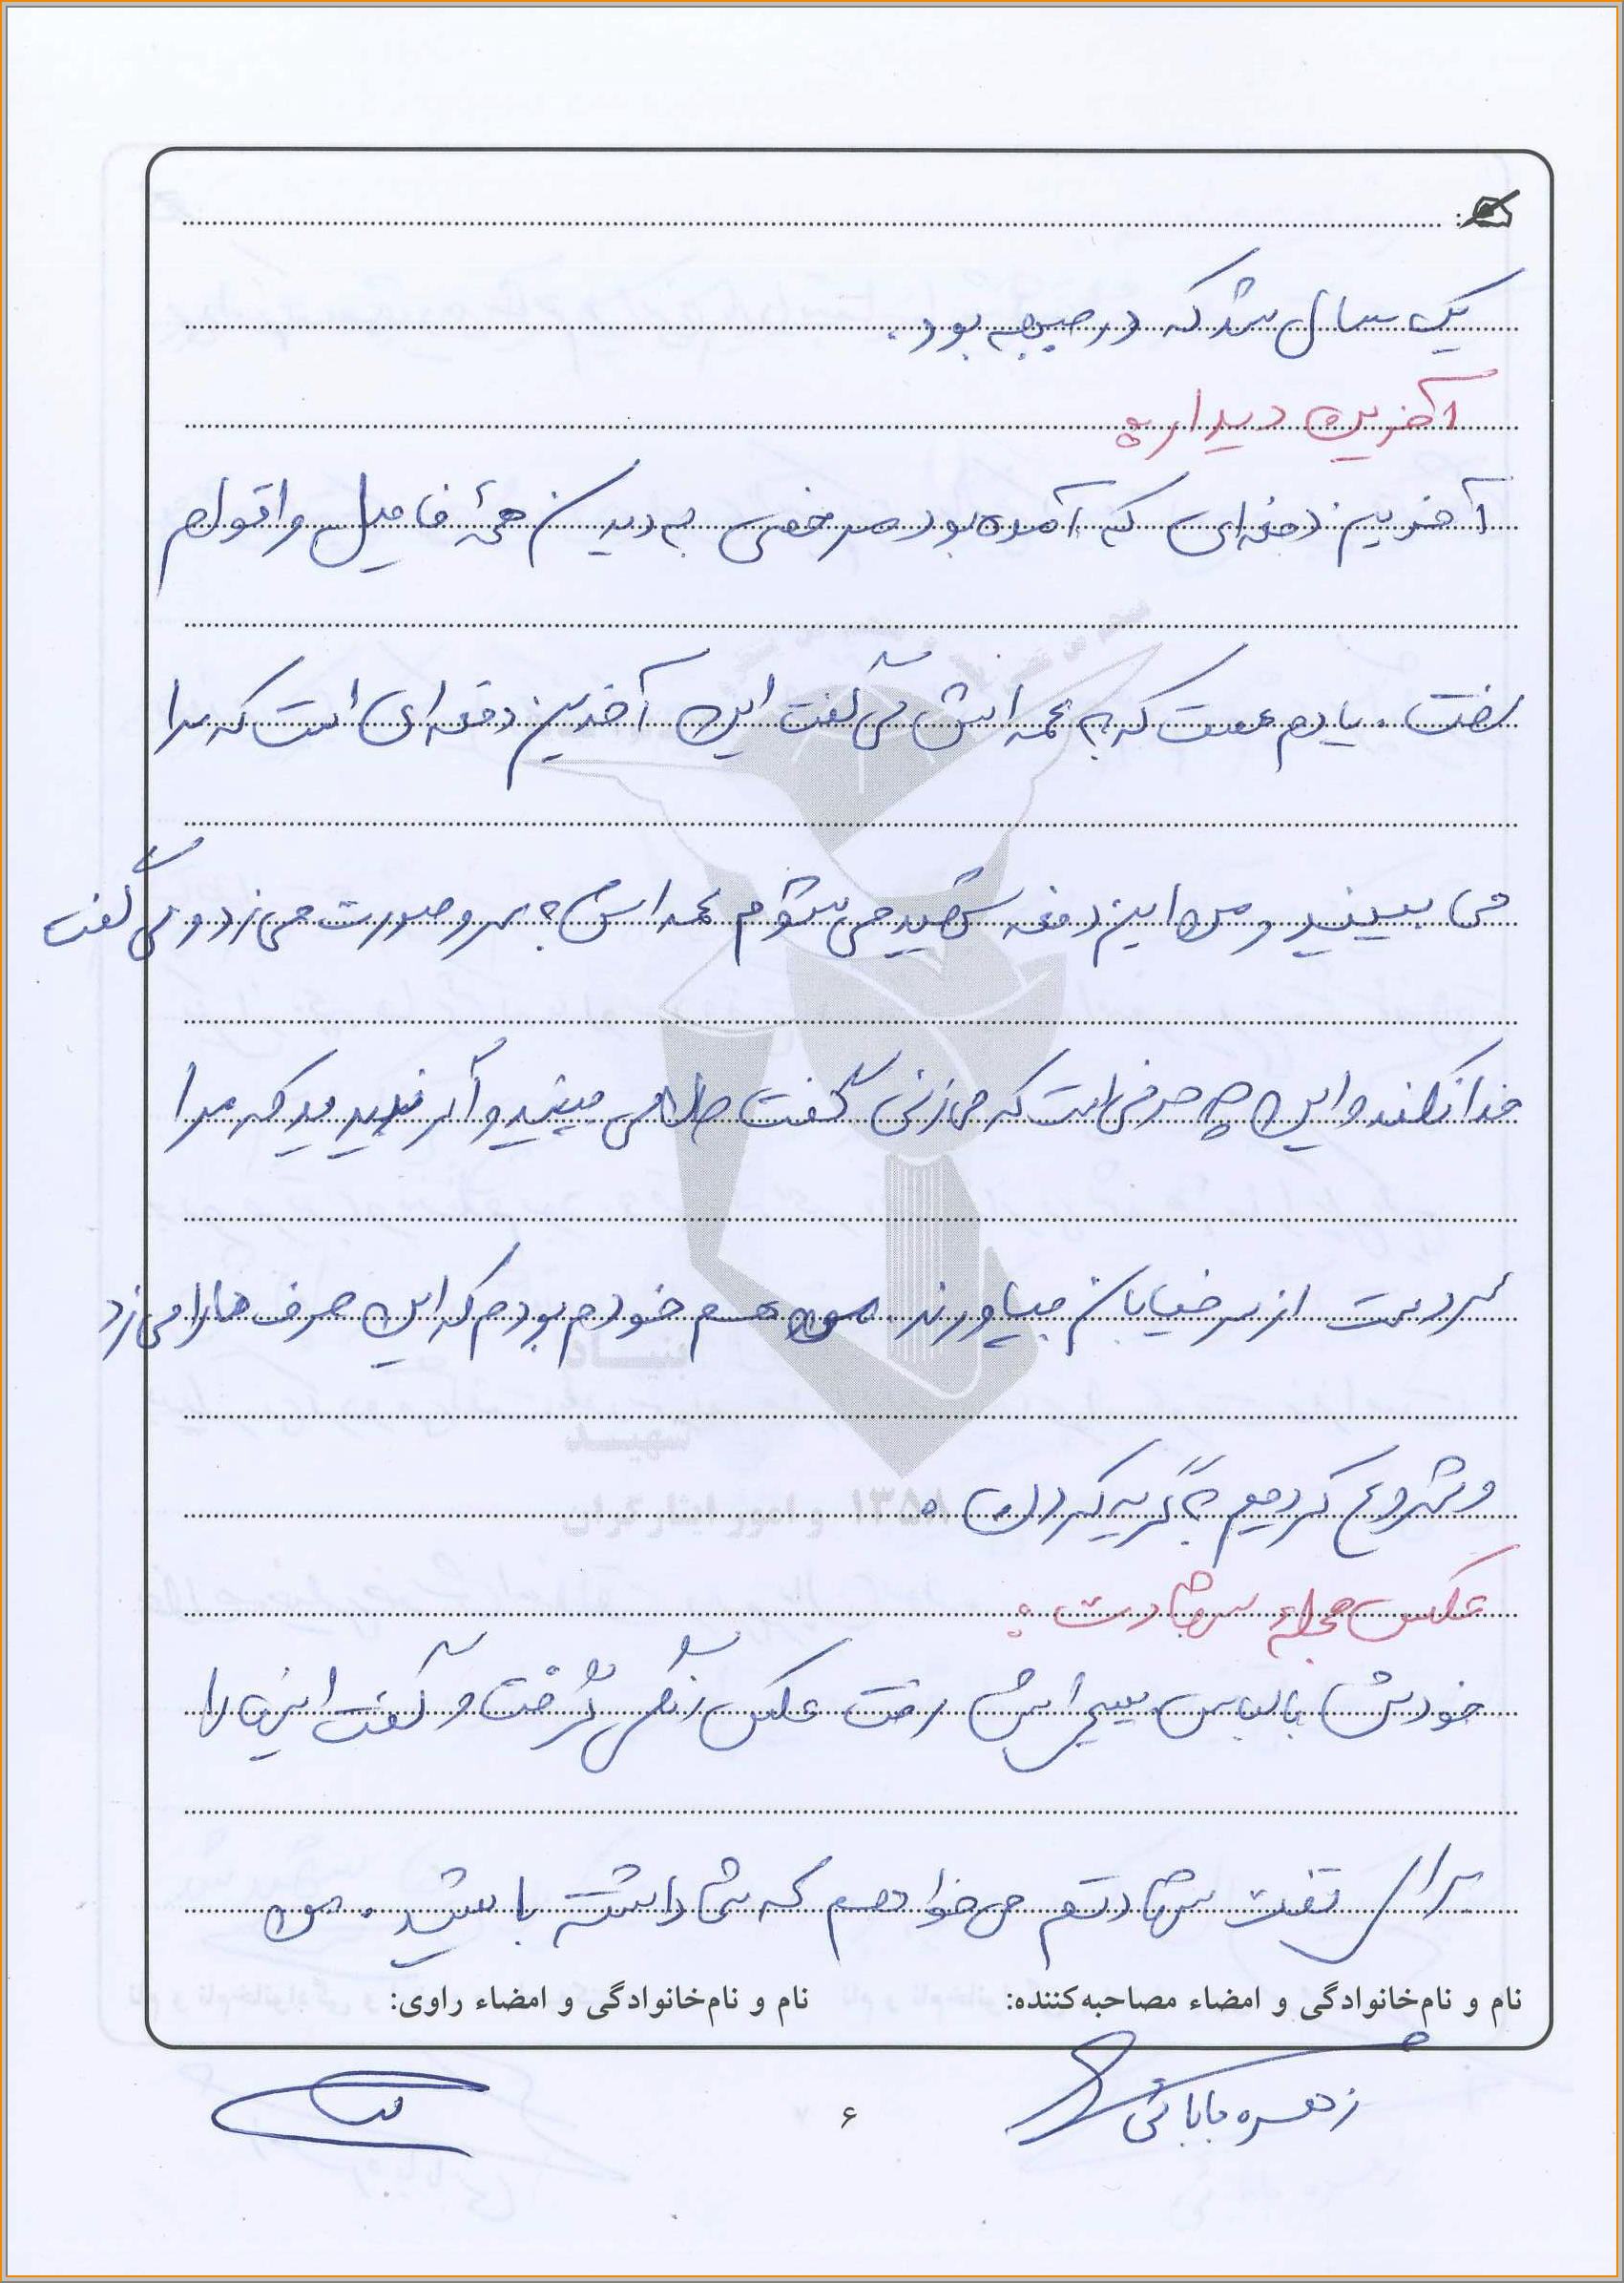 یک سال شد که در جبهه بود.
آخرین دیدار:
آخرین دفعه‌ای که آمده بود مرخصی به دیدن همهٔ فامیل و اقوام
رفت. یادم هست که به عمه‌اش می‌گفت این آخرین دفعه‌ای است که مرا
می‌بینید و من این دفعه شهید می‌شوم عمه‌اش به سر و صورت می‌زد و می‌گفت
خدا نکند و این چه حرفی است که می‌زنی گفت حالا می‌بینید و آخر دیدید که مرا
سردست از سر خیابان میاورند. من هم خودم بودم که این حرف‌ها را می‌زد
و شروع کردیم به گریه کردن.
عکس حجله شهادت:
خودش با لباس بسیجی‌اش رفت عکس رنگی گرفت و گفت این‌ها را
برای شهادتم می‌خواهم که شما داشته باشید. من
نام و نام‌خانوادگی و امضاء مصاحبه‌کننده: نام و نام‌خانوادگی و امضاء راوی:
زهره بابائی
۶
بنیاد
شهید
و امور ایثارگران ۱۳۵۸